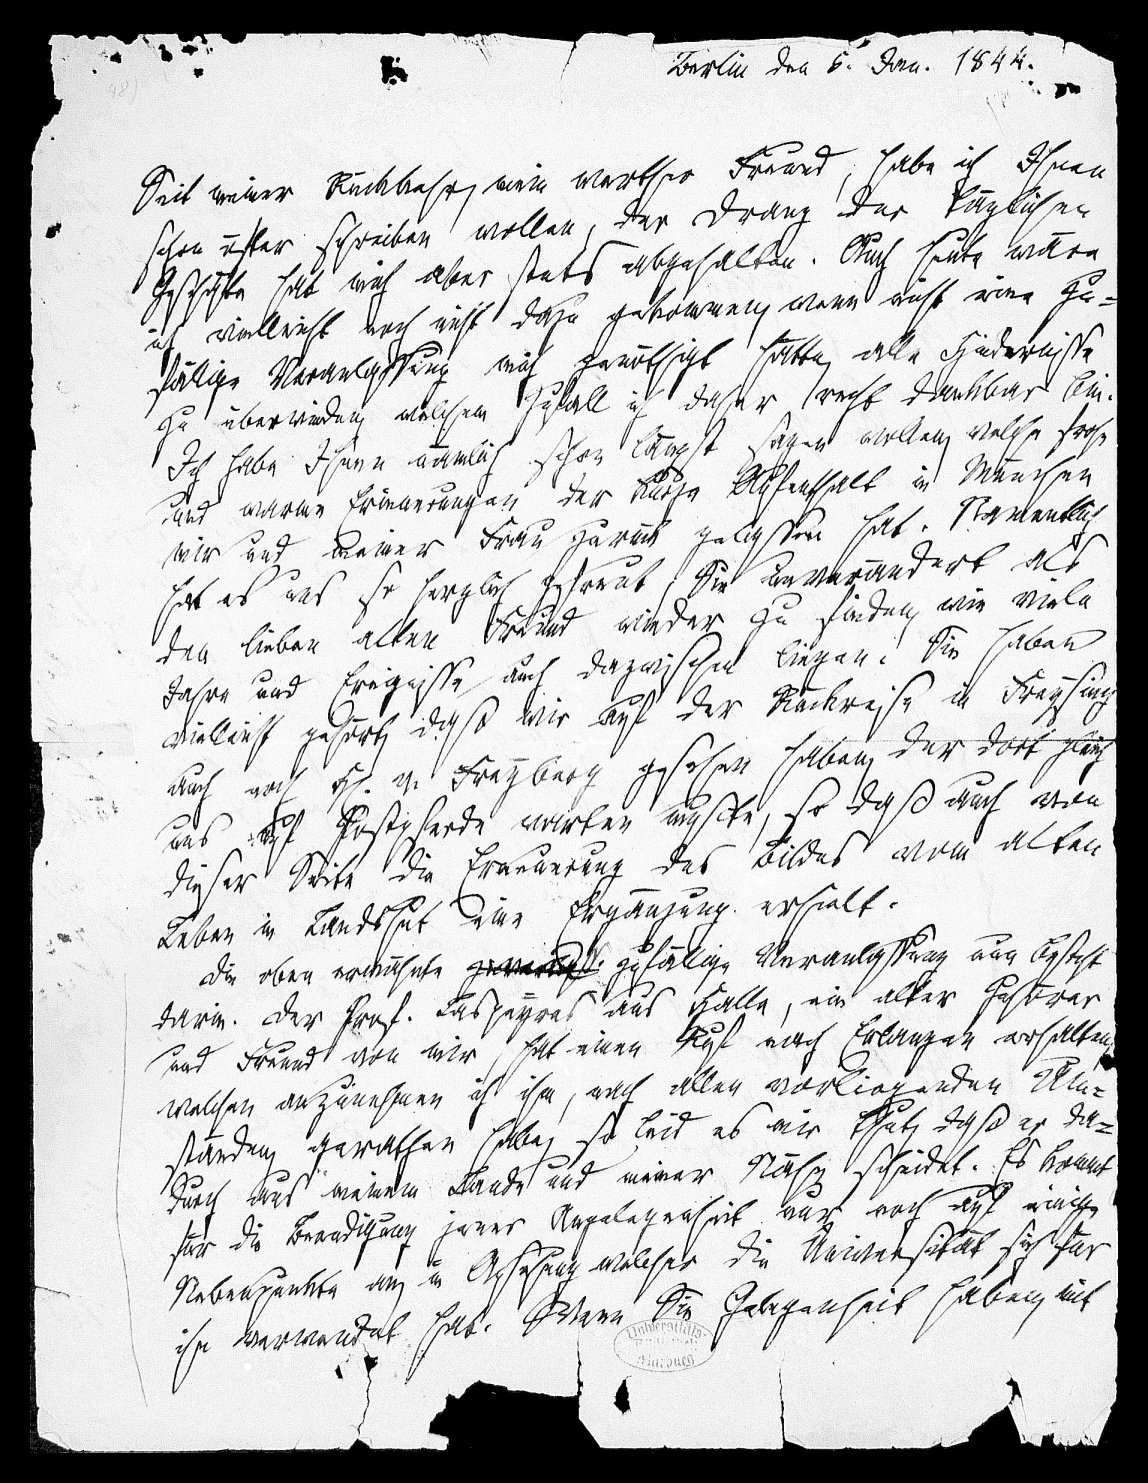 Berlin den 6. Jan. 1844.
Seit meiner Rückkehr, mein werther Freund, habe ich Ihnen
schon öfter schreiben wollen, der Drang der täglichen
Geschäfte hat mich aber stets abgehalten. Auch heute wäre
ich vielleicht noch nicht dazu gekommen, wenn nicht eine zu=
fällige Veranlassung mich genöthigt hätte, alle Hindernisse
zu überwinden, welchem Zufall ich daher recht dankbar bin.
Ich habe Ihnen nämlich schon längst sagen wollen, welche frohe
und warme Erinnerungen der kurze Aufenthalt in München
mir und meiner Frau zurück gelassen hat. Namentlich
hat es uns so herzlich gefreut, Sie unverändert als
den lieben alten Freund wieder zu finden, wie viele
Jahre und Ereignisse auch dazwischen liegen. Sie haben
vielleicht gehört, daß wir auf der Rückreise in Freysing
auch noch H. v. Freyberg gesehen haben, der dort gleich
uns auf Postpferde warten mußte, so daß auch von
dieser Seite die Erneuerung des Bildes vom alten
Leben in Landshut eine Ergänzung erhielt.
Die oben erwähnte zufällige Veranlassung nun besteht
darin. Der Prof. Laspeyres aus Halle, ein alter Zuhörer
und Freund von mir, hat einen Ruf nach Erlangen erhalten,
welchen anzunehmen ich ihm, nach allen vorliegenden Um=
ständen, gerathen habe, so leid es mir thut, daß er da=
durch aus meinem Lande und meiner Nähe scheidet. Es kommt
für die Beendigung jener Angelegenheit nur noch auf einige
Nebenpunkte an, in Ansehung welcher die Universität sich für
ihn verwendet hat. Wenn Sie Gelegenheit haben, mit
Universitäts-
Marburg